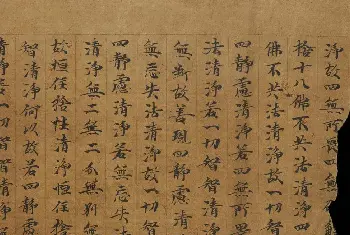 淨故四無所畏四無礙解
捨十八佛不共法清淨
佛不共法清淨故一切
四靜慮清淨若四無所畏
法清淨若一切智智清
無斷故善現四靜慮清
無忘失法清淨故一切智
四靜慮清淨若無忘失法
清淨無二無二分無別無
故恒住捨性清淨恒住捨
智清淨何以故若四靜慮
清淨若一切智智清淨